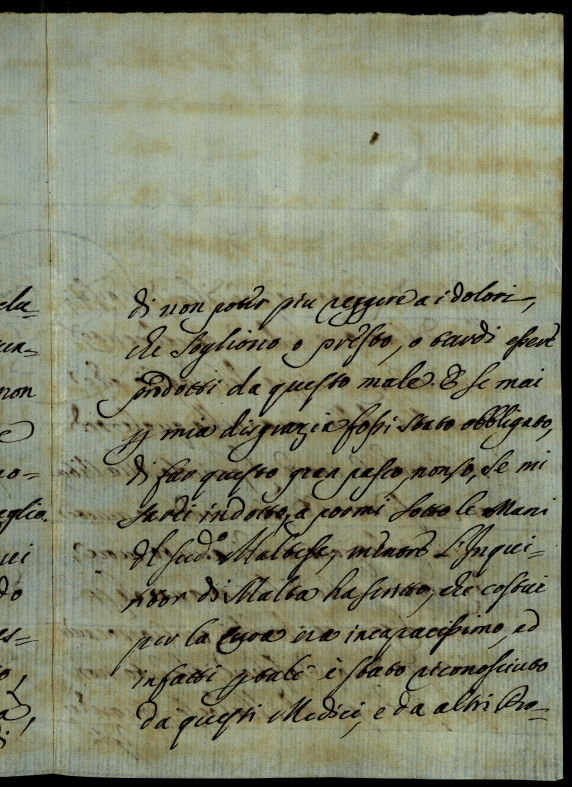 di non poter piu reggere a i dolori,
che sogliono o presto, o tardi essere
prodotti da questo male. E se mai
p mia disgrazia fossi stato obbligato,
di far questo gran passo, non so, se mi
sarei indotto, a pormi sotto le Mani
del sud.o Maltese, mentre l'Inqui=
sitor di Malta ha scritto, che costui
per la Cura era incapacissimo, ed
infatti p tale è stato riconosciuto
da questi Medici, e da altri Pro=
non